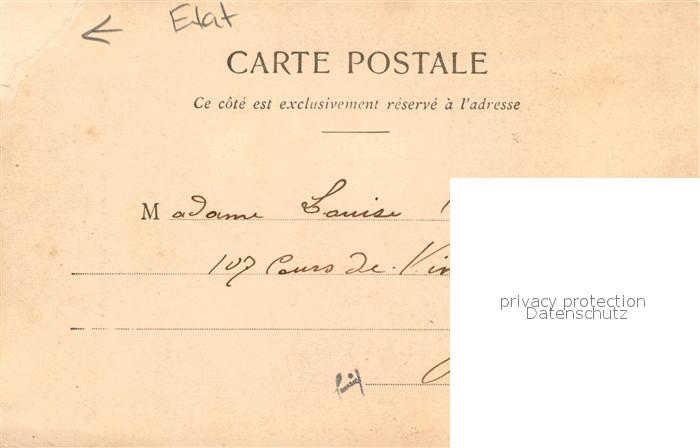 Etat
CARTE POSTALE
Ce côté est exclusivement réservé à l'adresse
Madame Louise
107 Cours de Vin
privacy protection
Datenschutz